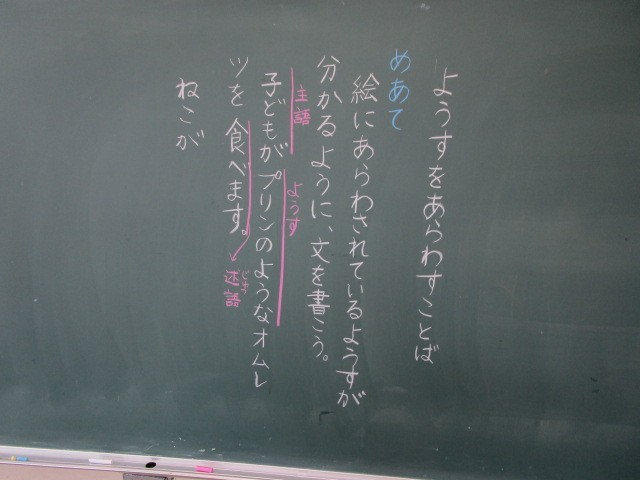 ようすをあらわすことば
めあて
絵にあらわされているようすが
分かるように、文を書こう。
主語
ようす
子どもがプリンのようなオムレ
ツを食べます。
じゅつ
述語
ねこが